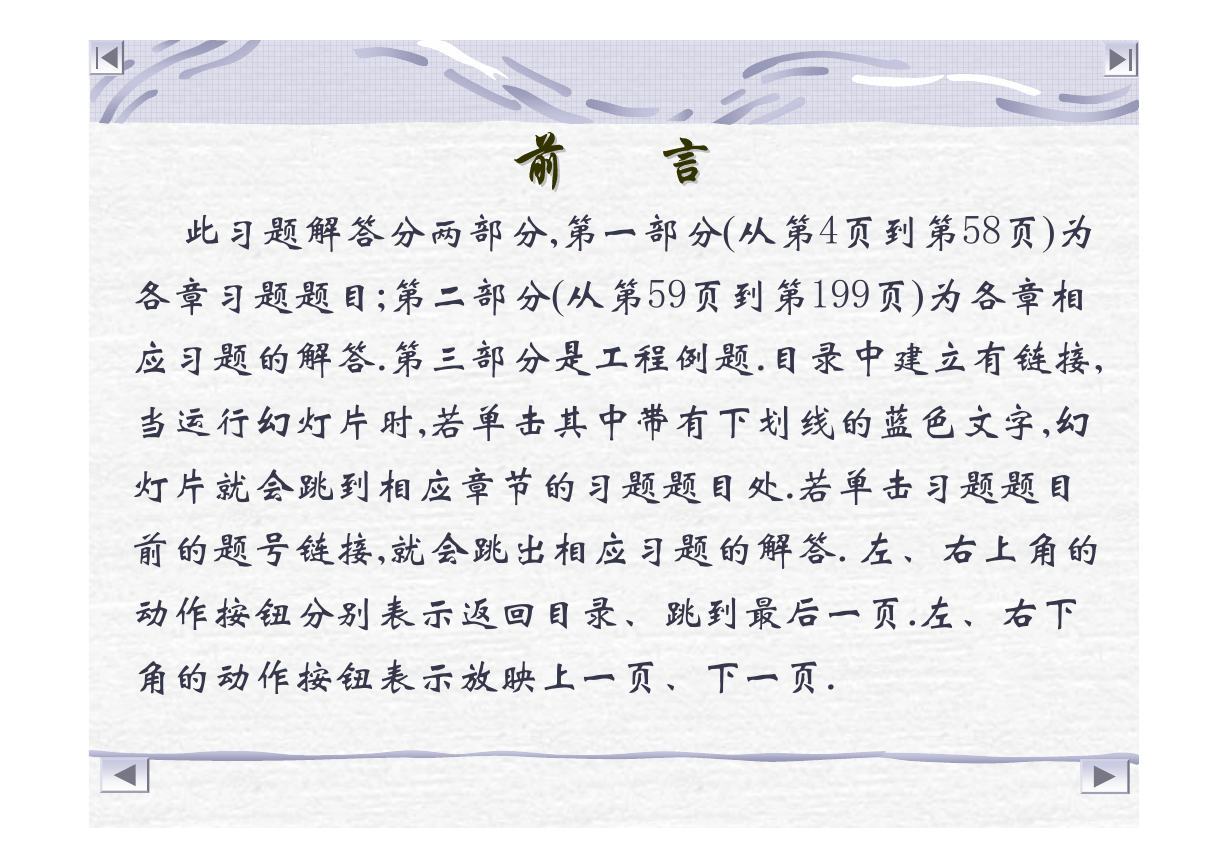 前 言
此习题解答分两部分,第一部分(从第4页到第58页)为
各章习题题目;第二部分(从第59页到第199页)为各章相
应习题的解答.第三部分是工程例题.目录中建立有链接,
当运行幻灯片时,若单击其中带有下划线的蓝色文字,幻
灯片就会跳到相应章节的习题题目处.若单击习题题目
前的题号链接,就会跳出相应习题的解答. 左、右上角的
动作按钮分别表示返回目录、跳到最后一页.左、右下
角的动作按钮表示放映上一页、下一页.